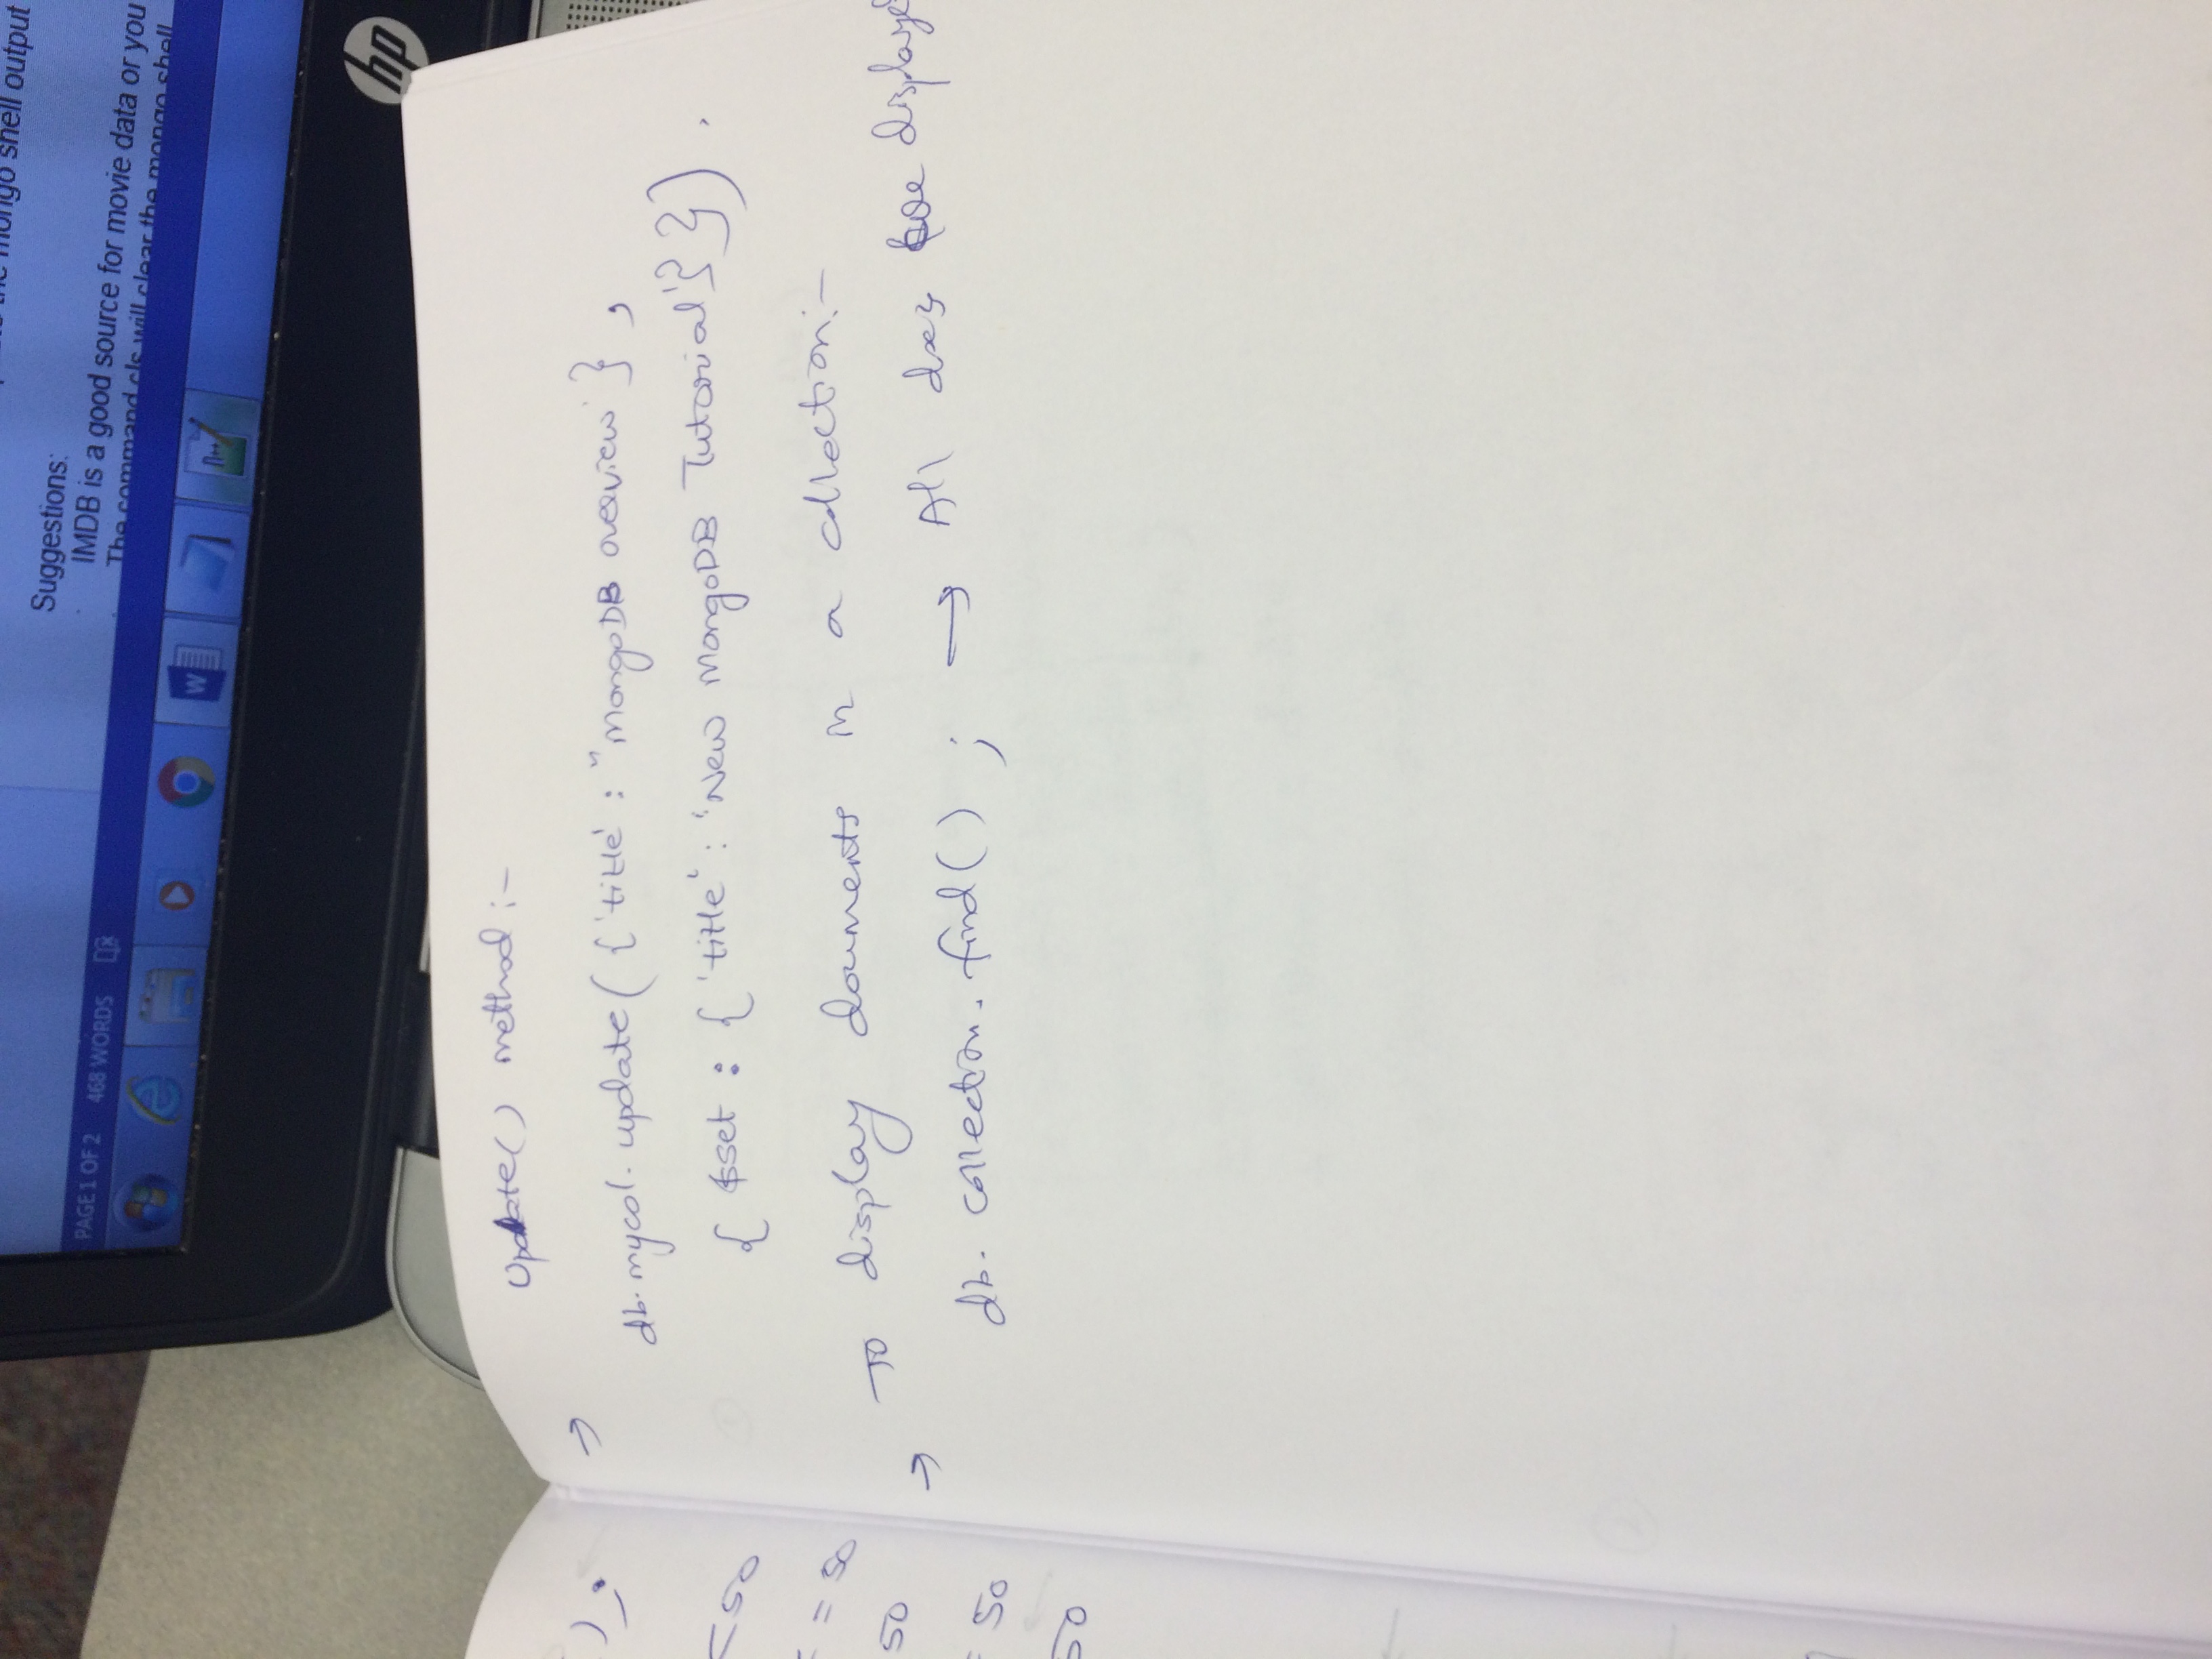 the mongo shell output
Suggestions:
IMDB is a good source for movie data or you
The command cls will clear the mongo shell
PAGE 1 OF 2 468 WORDS
W
hp
Update() method :-
→
db.mycol.update({'title' : "MongoDB overview'},
{ $set : {'title' : 'New MongoDB Tutorial'}}) .
To display documents in a collection:-
→
db. collection. find() ; → All docs are displaye
);
<50
= 50
50
= 50
50